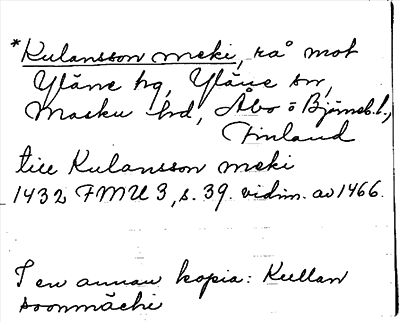 *Kulansson meki, rå mot
Yläne hg, Yläne sn,
Masku hd, Åbo o Björneb.l.,
Finland
till Kulansson meki
1432 FMU 3, s. 39. vidim. av 1466.
I en annan kopia: Kullan
soonmäcki